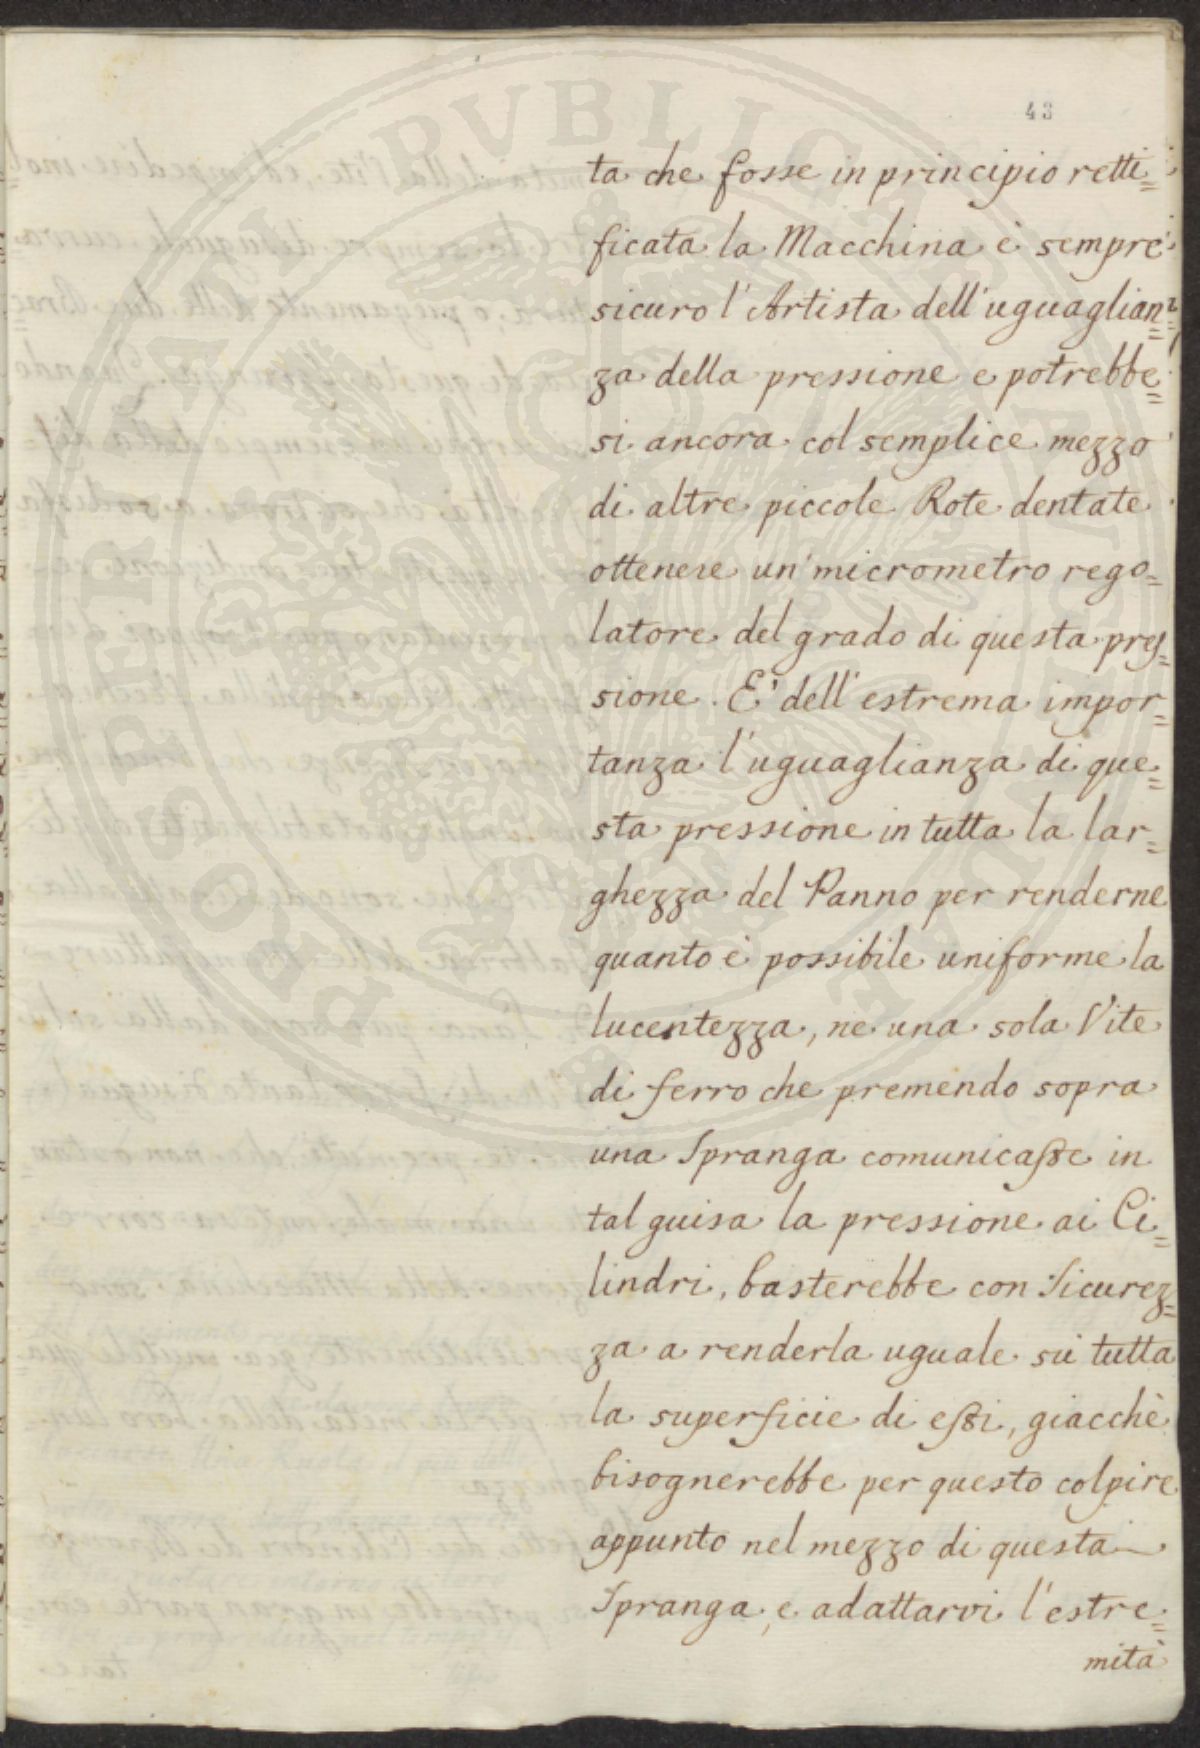 43
ta che fosse in principio retti=
ficata la Macchina è sempre
sicuro l'Artista dell'uguaglian=
za della pressione e potrebbe=
si ancora col semplice mezzo
di altre piccole Rote dentate
ottenere un'micrometro rego=
latore del grado di questa pres=
sione. E' dell'estrema impor=
tanza l'uguaglianza di que=
sta pressione in tutta la lar=
ghezza del Panno per renderne
quanto è possibile uniforme la
lucentezza, ne una sola Vite
di ferro che premendo sopra
una Spranga comunicasse in
tal guisa la pressione ai Ci=
lindri, basterebbe con Sicurez=
za a renderla uguale sù tutta
la superficie di essi, giacchè
bisognerebbe per questo colpire
appunto nel mezzo di questa
Spranga, e adattarvi l'estre=
mità
PROSPERITATI PVBLICAE AVGENDAE